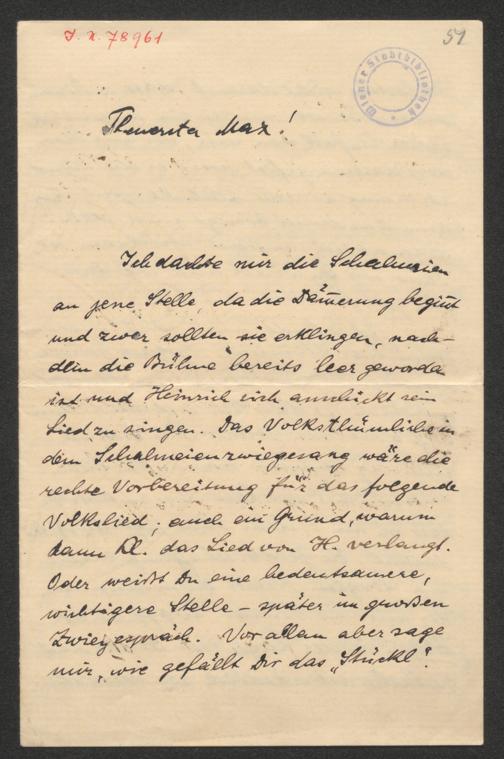 J. N. 78961
51
Wiener Stadtbibliothek
Theuerster Max!
Ich dachte mir die Schalmeien
an jene Stelle, da die Däm̅erung begin̅t
und zwar sollten sie erklingen, nach-
dem die Bühne bereits leer geworden
ist und Heinrich sich anschickt sein
Lied zu singen. Das Volksthümliche in
dem Schalmeienzwiegesang wäre die
rechte Vorbereitung für das folgende
Volkslied; auch ein Grund, warum
dann Kl. das Lied von H. verlangt.
Oder weißt Du eine bedeutsamere,
wichtigere Stelle – später im großen
Zwiegespräch. Vor allem aber sage
mir, wie gefällt Dir das „Stückl“.